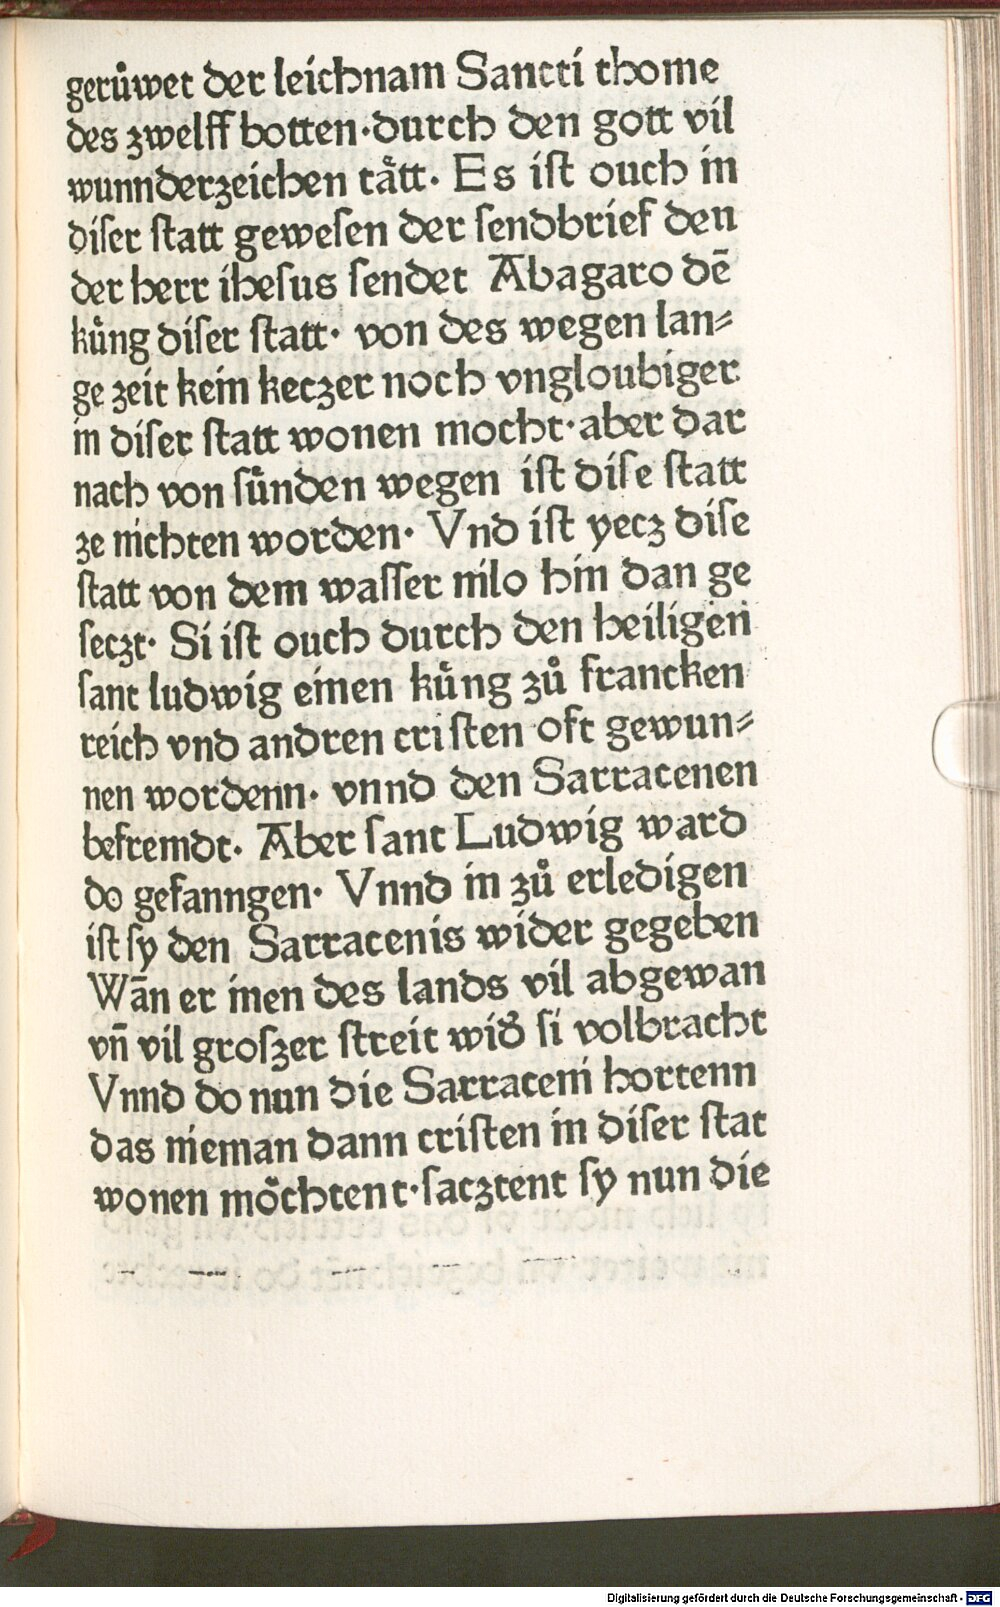 gerůwet der leichnam Sancti thome
des zwelff botten·durch den gott vil
wunnderzeichen tått· Es iſt ouch in
diſer ſtatt geweſen der ſendbrief den
der herr iheſus ſendet Abagaro dē
kůng diſer ſtatt· von des wegen lan⸗
ge zeit kein keczer noch vngloubiger
in diſer ſtatt wonen mocht·aber dar
nach von ſünden wegen iſt diſe ſtatt
ze nichten worden· Vnd iſt yecz diſe
ſtatt von dem waſſer nilo hin dan ge
ſeczt· Si iſt ouch durch den heiligen
ſant ludwig einen kůng zů francken
reich vnd andren criſten oft gewun⸗
nen wordenn· vnnd den Sarracenen
befremdt· Aber ſant Ludwig ward
do gefanngen· Vnnd in zů erledigen
iſt ſy den Sarracenis wider gegeben
Wān er inen des lands vil abgewan
vn̄ vil groſzer ſtreit wid̕ ſi volbracht
Vnnd do nun die Sarraceni hortenn
das nieman dann criſten in diſer ſtat
wonen möchtent·ſacztent ſy nun die
Digitalisierung gefördert durch die Deutsche Forschungsgemeinschaft - DFG